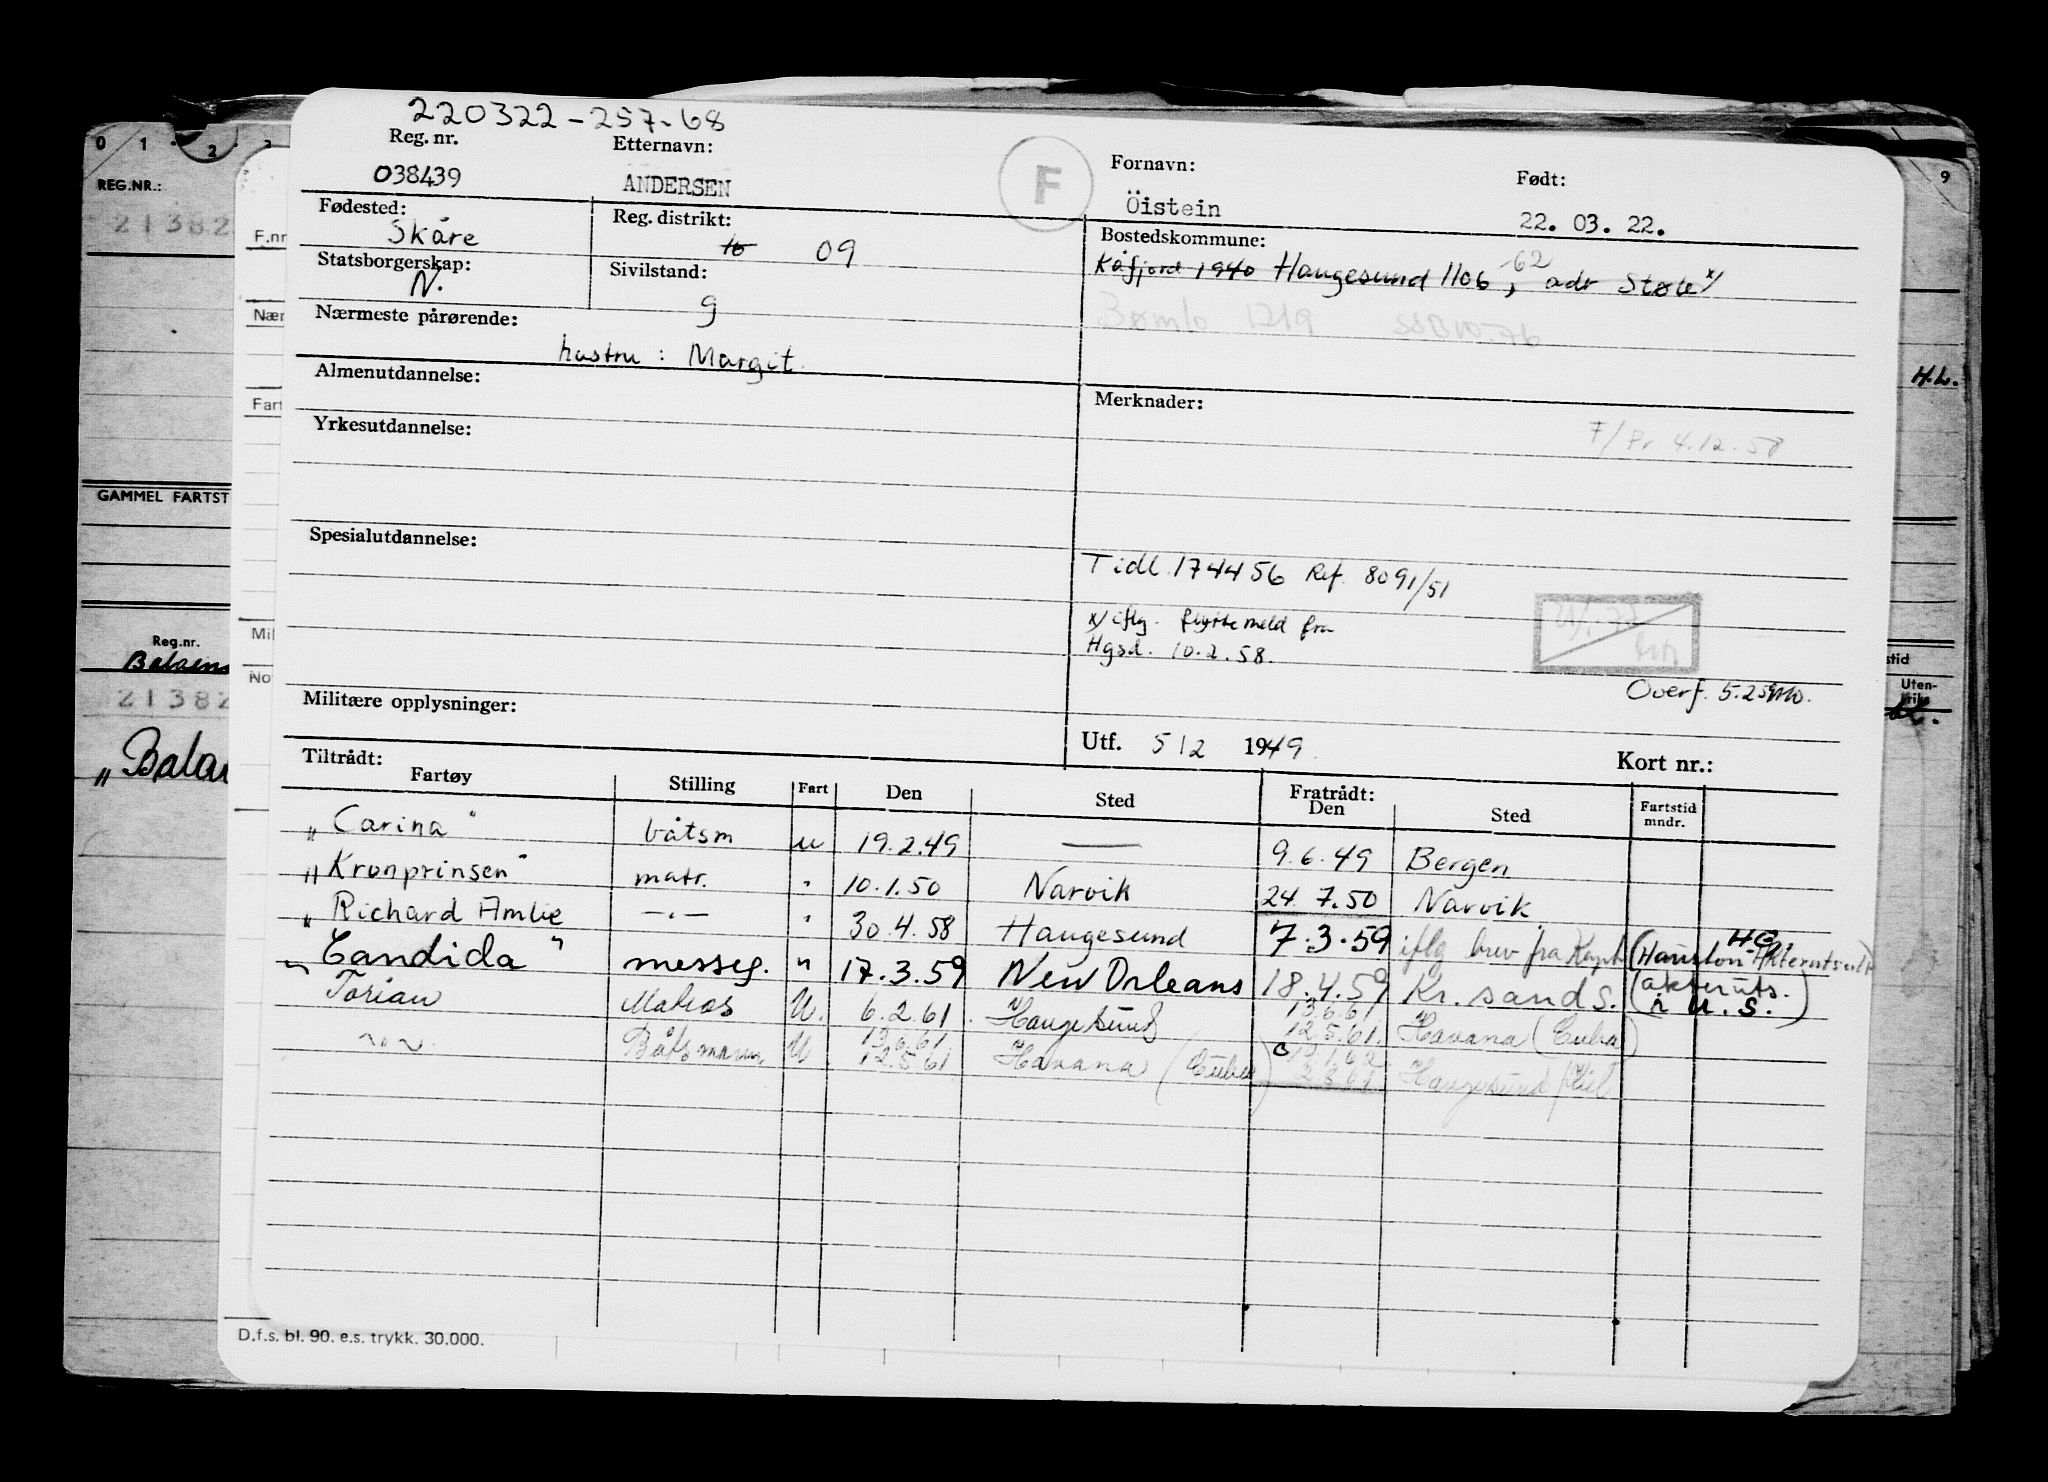 220322-257-68
Reg. nr. Etternavn: Fornavn: Født:
038439 ANDERSEN F Öistein 22. 03. 22.
Fødested: Reg. distrikt: Bostedskommune:
Skåre 16 09 Kåfjord 1940 Haugesund 1106, -62 adr Støle x/
Statsborgerskap: Sivilstand:
N. g Bømlo 1219
Nærmeste pårørende:
hustru: Margit.
Almenutdannelse: Merknader:
F/Pr 4.12.58
Yrkesutdannelse:
Spesialutdannelse:
Tidl. 174456 Ref. 8091/51
x/ iflg. flyttemeld fra
Hgsd. 10.2.58.
Overf. 5.2.59
Militære opplysninger:
Utf. 5/2 1949. Kort nr.:
Tiltrådt: Fratrådt:
Fartøy Stilling Fart Den Sted Den Sted Fartstid mndr.
"Carina" båtsm u 19.2.49 — 9.6.49 Bergen
"Kronprinsen" matr. " 10.1.50 Narvik 24.7.50 Narvik
" Richard Amlie —"— " 30.4.58 Haugesund 7.3.59 iflg brev fra Kapt (Houston
"Candida" messeg. " 17.3.59 New Orleans 18.4.59 Kr. sand S. (akteruts. i U.S.)
Torian Matros U. 6.2.61. Haugesund 13.6.61 12.5.61. Havana (Cuba)
—"— Båtsmann U 13.6.61. 12.5.61 Havana (Cuba) Haugesund / Kiel
D.f.s. bl. 90. e.s. trykk. 30.000.
0 1 2
REG.NR.:
21382
F.nr
Nær
Fart
GAMMEL FARTST
Mil
Reg.nr.
No
21382
"Balae
9
H.L.
stid
Uten-
riks